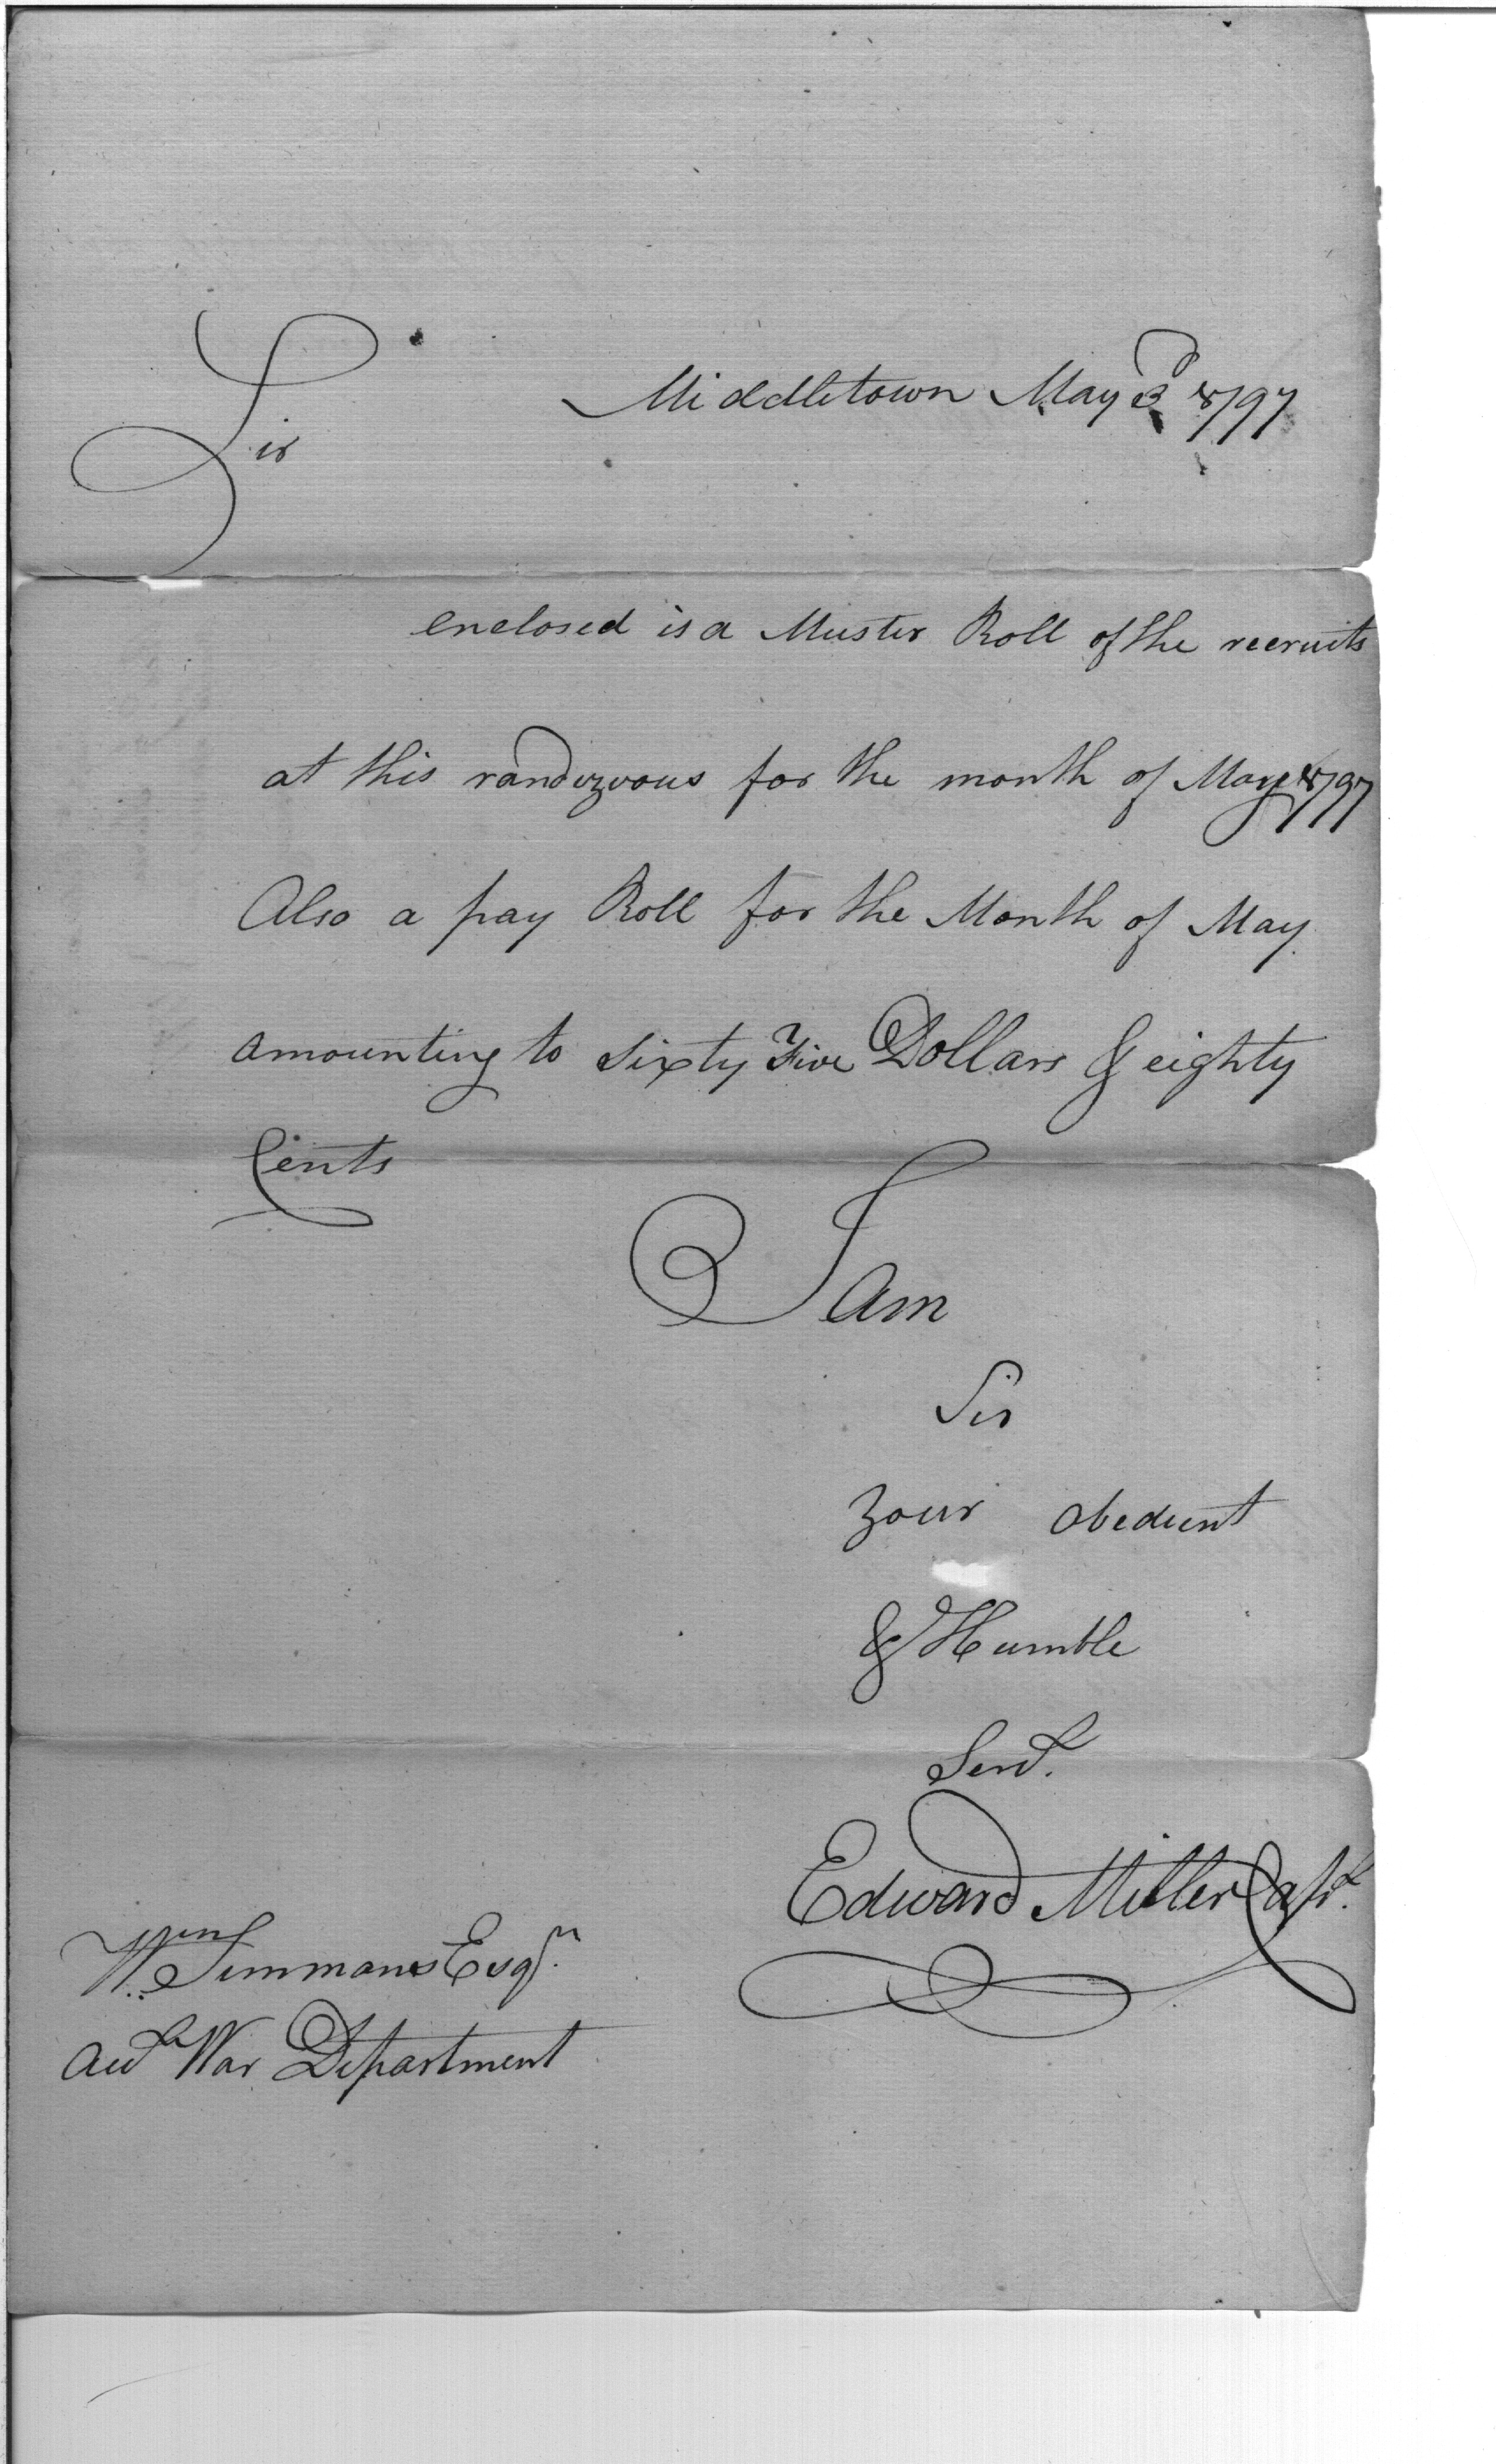 Middletown May 3d 1797
Sir
enclosed is a Muster Roll of the recruits
at this randezvous for the month of May 1797
Also a pay Roll for the Month of May
amounting to Sixty Five Dollars & eighty
Cents
I am
Sir
Your obedient
& Humble
Servt.
Edward Miller Capt.
Wm Simmons Esqr.
War Department